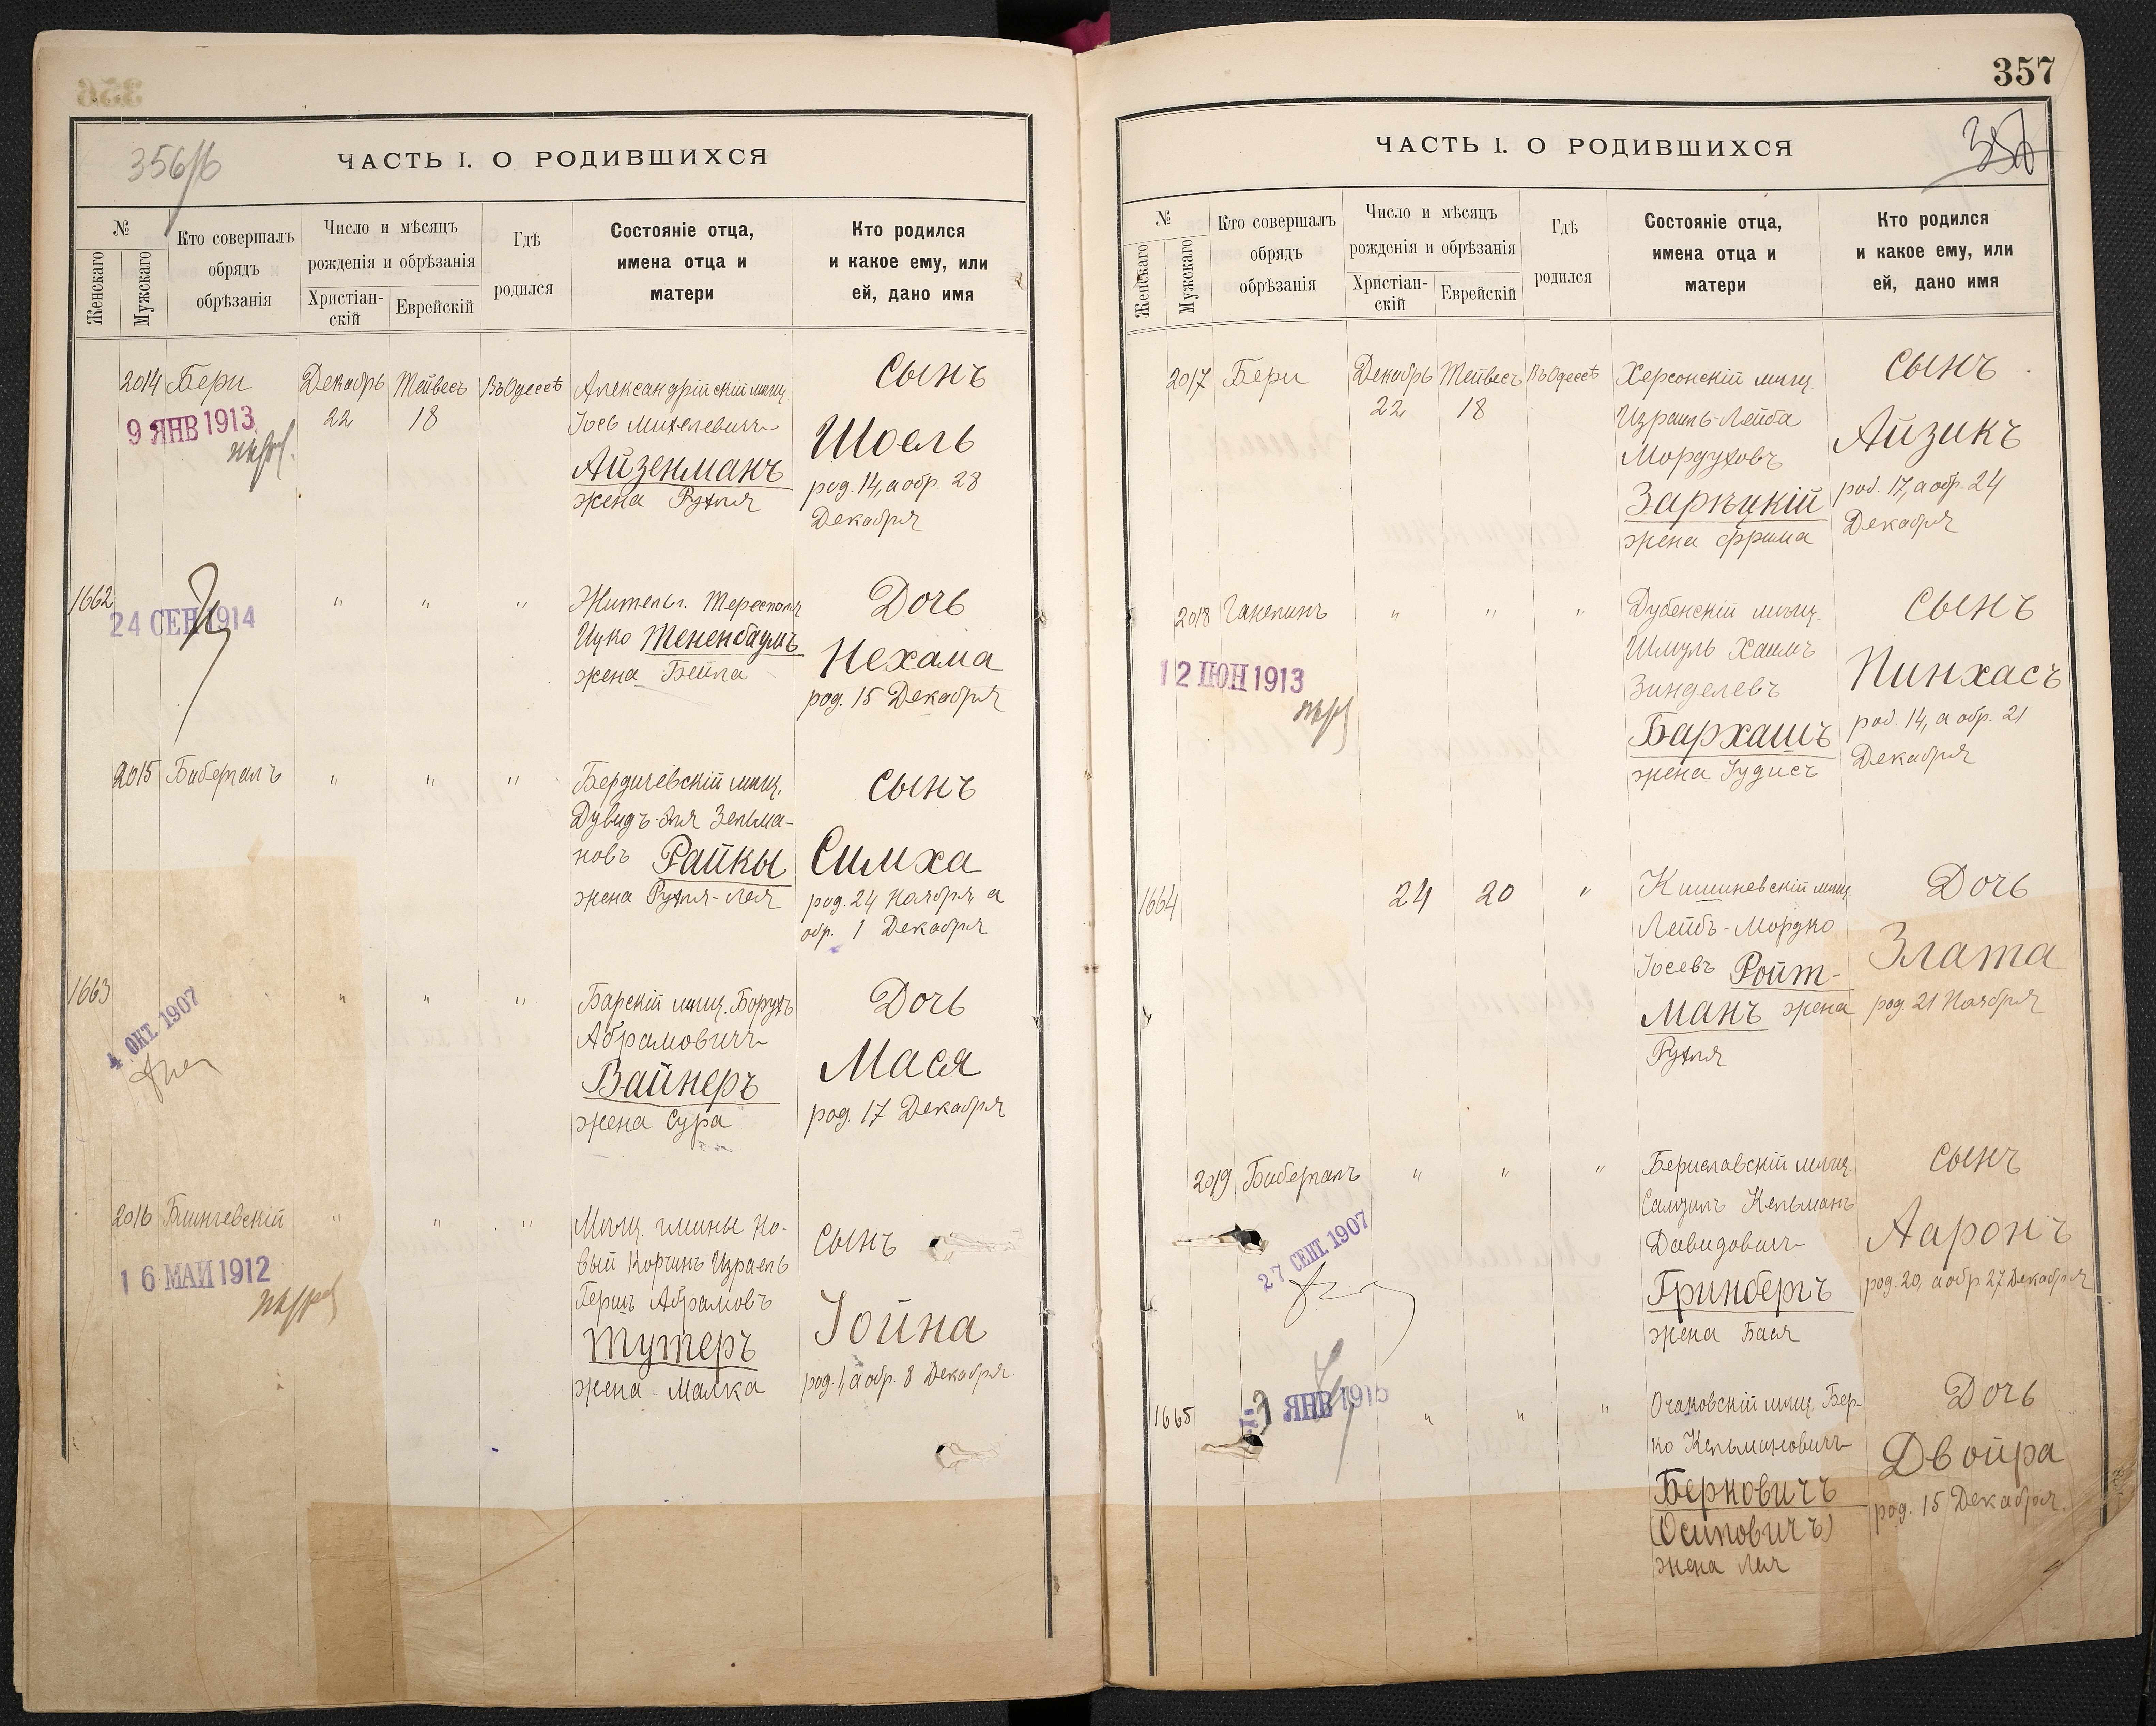 356
356/б
ЧАСТЬ I. О РОДИВШИХСЯ
№
Женскаго
Мужскаго
Кто совершалъ
обрядъ
обрѣзанія
Число и мѣсяцъ
рожденія и обрѣзанія
Христіан-
скій
Еврейскій
Гдѣ
родился
Состояніе отца,
имена отца и
матери
Кто родился
и какое ему, или
ей, дано имя
2014 Бери Декабрь 22 Тейвесъ 18 Въ Одессѣ
9 ЯНВ 1913
Александрійскій мѣщ.
Іось Михелевичъ
Айзенманъ
жена Рухля
Сынъ
Шоель
род. 14, а обр. 28
Декабря
1662 " " "
24 СЕН 1914
Житель г. Тересполя
Ицко Тененбаумъ
жена Бейла
Дочь
Нехама
род. 15 Декабря
2015 Биберталъ " " "
Бердичевскій мѣщ.
Дувидъ-Эля Зельма-
новъ Райкы
жена Рухля-Лея
Сынъ
Симха
род. 24 Ноября, а
обр. 1 Декабря
1663 " " "
4 ОКТ. 1907
Барскій мѣщ. Борухъ
Абрамовичъ
Вайнеръ
жена Сура
Дочь
Мася
род. 17 Декабря
2016 " " "
16 МАИ 1912
Мѣщ. гмины Но-
вый Корчинъ Израель
Гершъ Абрамовъ
Тутеръ
жена Малка
Сынъ
Іойна
род. 1, а обр. 8 Декабря
357
357
ЧАСТЬ I. О РОДИВШИХСЯ
№
Женскаго
Мужскаго
Кто совершалъ
обрядъ
обрѣзанія
Число и мѣсяцъ
рожденія и обрѣзанія
Христіан-
скій
Еврейскій
Гдѣ
родился
Состояніе отца,
имена отца и
матери
Кто родился
и какое ему, или
ей, дано имя
2017 Бери Декабрь 22 Тейвесъ 18 Въ Одессѣ
Херсонскій мѣщ.
Израиль-Лейба
Мордуховъ
Зарѣцкій
жена Фрима
Сынъ
Айзикъ
род. 17, а обр. 24
Декабря
2018 Галепинъ " " "
12 ІЮН 1913
Дубенскій мѣщ.
Шмуль Хаимъ
Зинделевъ
Бархашъ
жена Іудисъ
Сынъ
Пинхасъ
род. 14, а обр. 21
Декабря
1664 24 20 "
Кишиневскій мѣщ.
Лейбъ-Мордко
Іосевъ Ройт-
манъ жена
Рухля
Дочь
Злата
род. 21 Ноября
2019 Биберталъ " " "
27 СЕНТ. 1907
Бериславскій мѣщ.
Самуилъ Кельманъ
Давидовичъ
Гринбергъ
жена Бася
Сынъ
Ааронъ
род. 20, а обр. 27 Декабря
1665 " " "
ЯНВ 1915
Очаковскій мѣщ. Бер-
ко Кельмановичъ
Берковичъ
(Осиповичъ)
жена Лея
Дочь
Двойра
род. 15 Декабря.